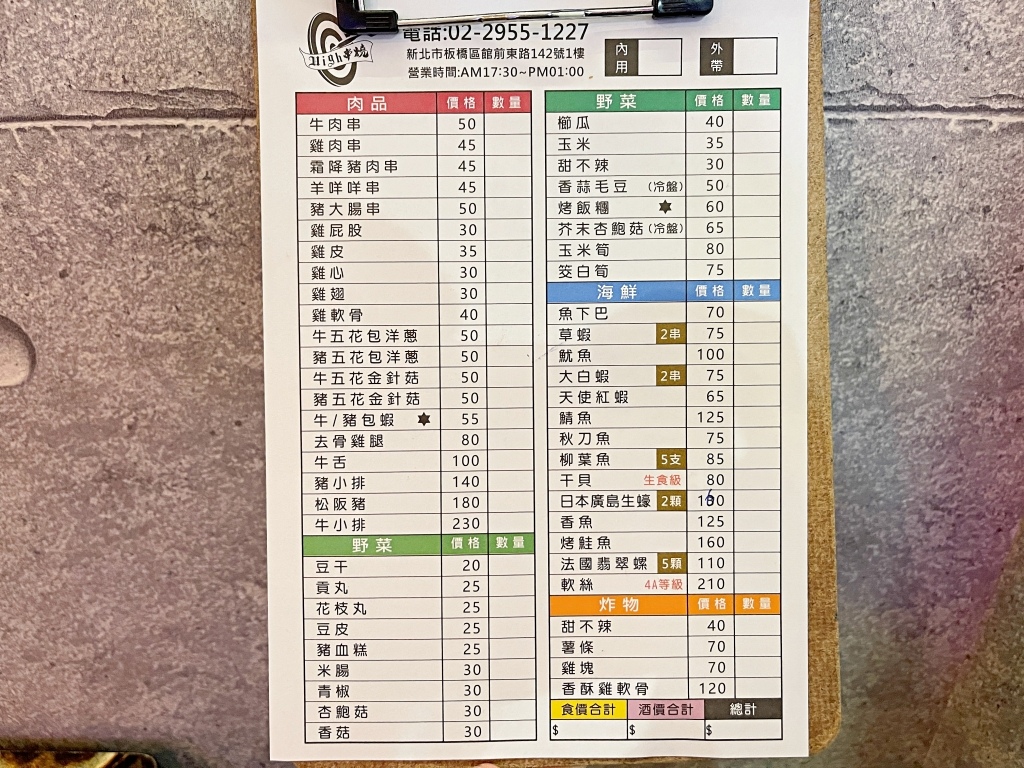 High串燒
電話:02-2955-1227
新北市板橋區館前東路142號1樓
營業時間:AM17:30~PM01:00
內用
外帶
肉品 價格 數量
牛肉串 50
雞肉串 45
霜降豬肉串 45
羊咩咩串 45
豬大腸串 50
雞屁股 30
雞皮 35
雞心 30
雞翅 30
雞軟骨 40
牛五花包洋蔥 50
豬五花包洋蔥 50
牛五花金針菇 50
豬五花金針菇 50
牛/豬包蝦 55
去骨雞腿 80
牛舌 100
豬小排 140
松阪豬 180
牛小排 230
野菜 價格 數量
豆干 20
貢丸 25
花枝丸 25
豆皮 25
豬血糕 25
米腸 30
青椒 30
杏鮑菇 30
香菇 30
野菜 價格 數量
櫛瓜 40
玉米 35
甜不辣 30
香蒜毛豆 (冷盤) 50
烤飯糰 60
芥末杏鮑菇(冷盤) 65
玉米筍 80
筊白筍 75
海鮮 價格 數量
魚下巴 70
草蝦 2串 75
魷魚 100
大白蝦 2串 75
天使紅蝦 65
鯖魚 125
秋刀魚 75
柳葉魚 5支 85
干貝 生食級 80
日本廣島生蠔 2顆
香魚 125
烤鮭魚 160
法國翡翠螺 5顆 110
軟絲 4A等級 210
炸物 價格 數量
甜不辣 40
薯條 70
雞塊 70
香酥雞軟骨 120
食價合計 酒價合計 總計
$ $ $